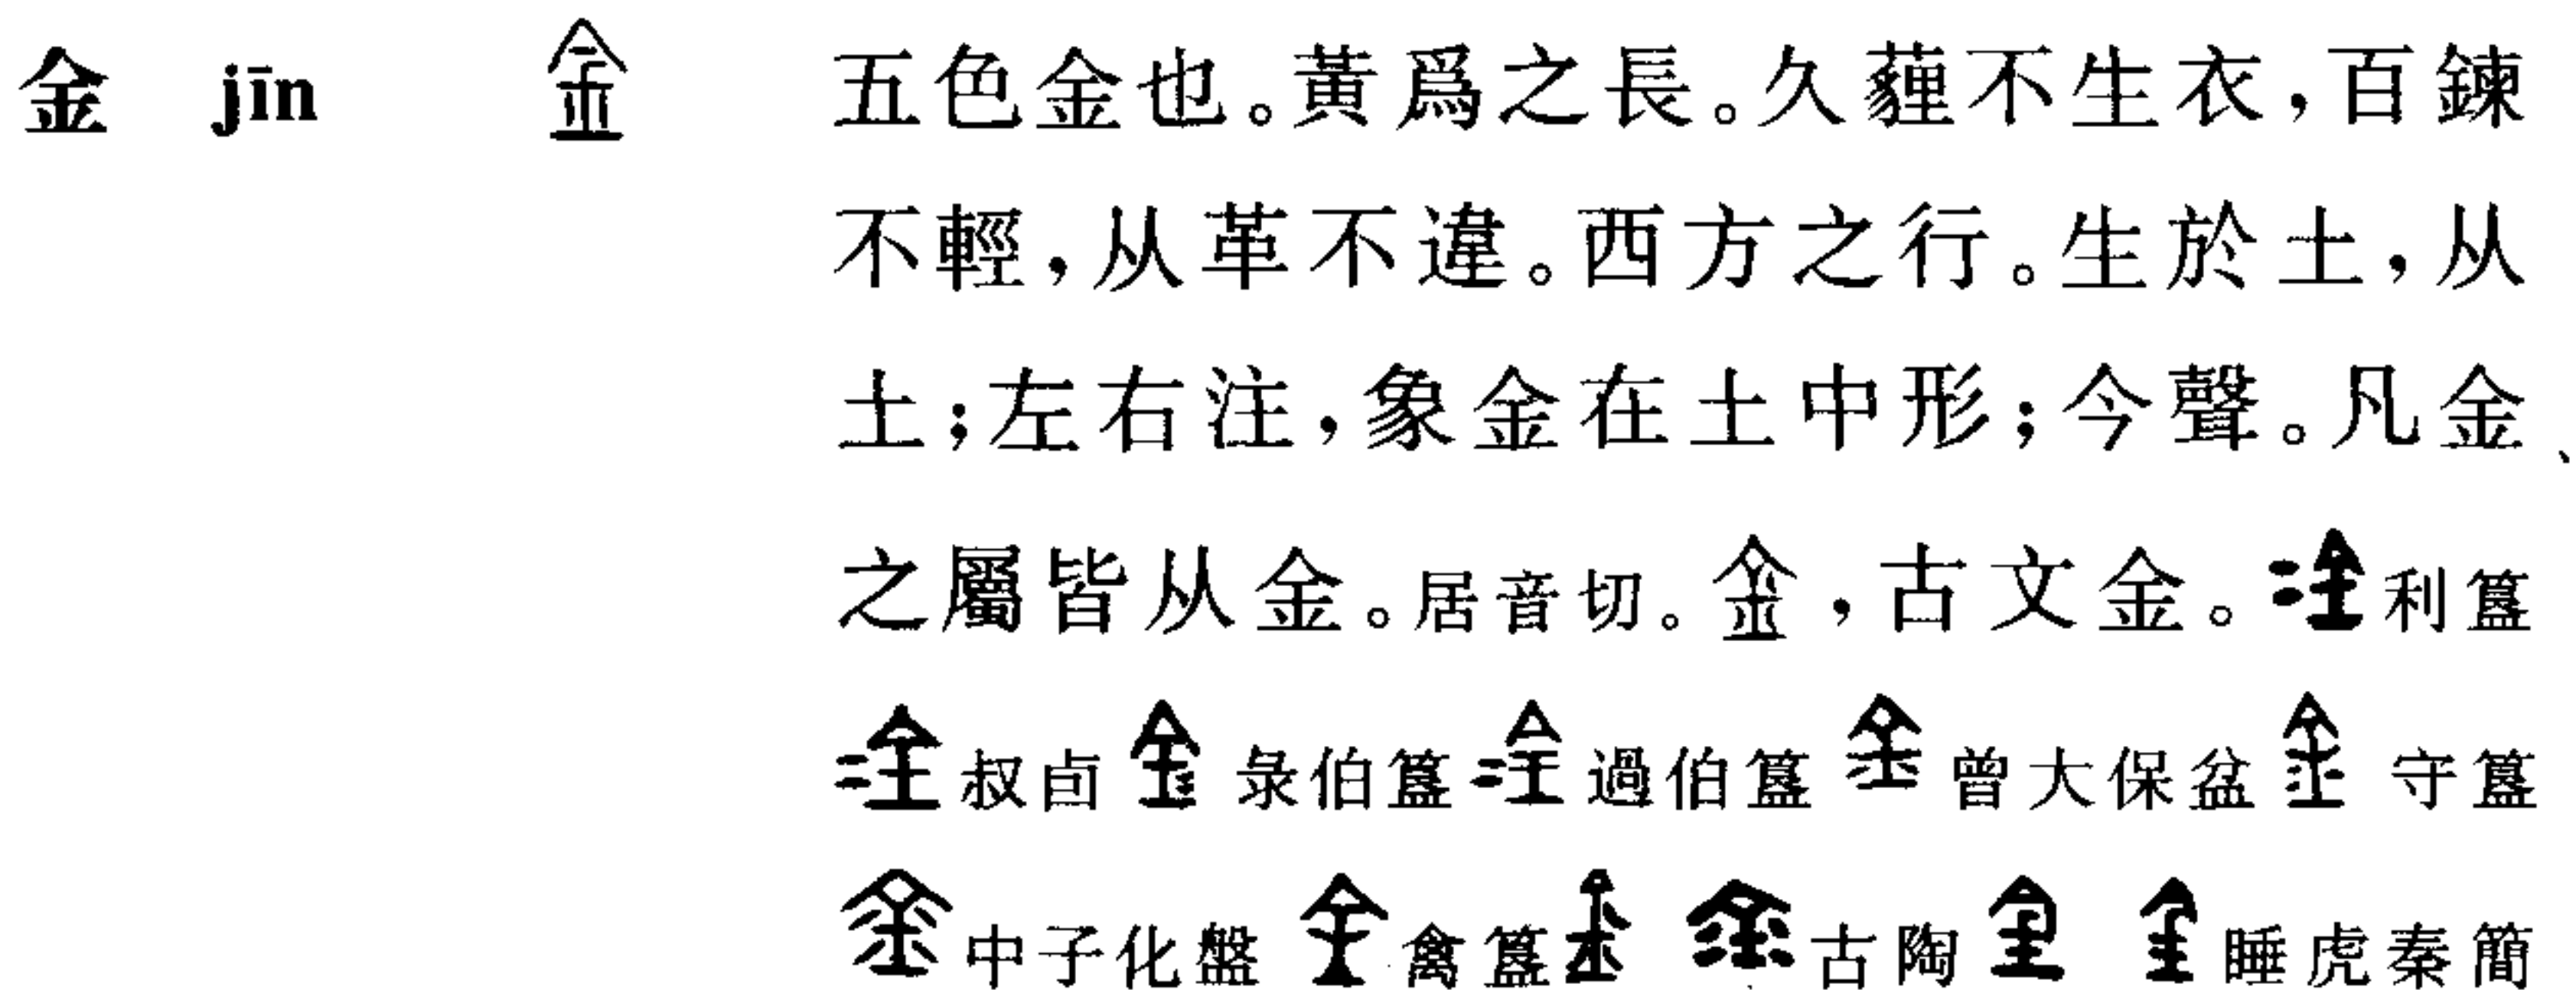 金 jīn 金 五色金也。黃爲之長。久薶不生衣，百鍊
不輕，从革不違。西方之行。生於土，从
土；左右注，象金在土中形；今聲。凡金
之屬皆从金。居音切。金，古文金。金利簋
金叔卣金彔伯簋金過伯簋金曾大保盆金守簋
金中子化盤金禽簋金金古陶金金睡虎秦簡